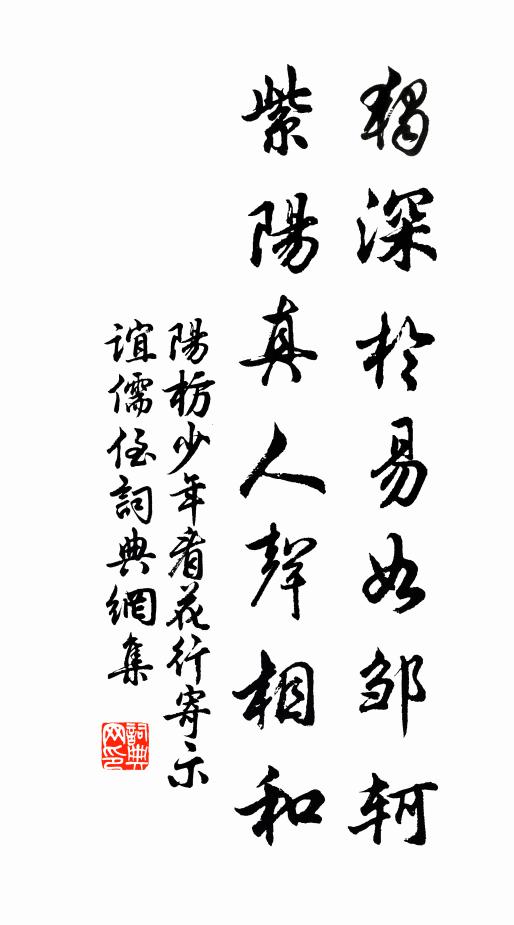 獨深於易如邹軻
紫陽真人聲相和
陽枋少年看花行寄示
誼儒侄詞典網集
詞典
网印